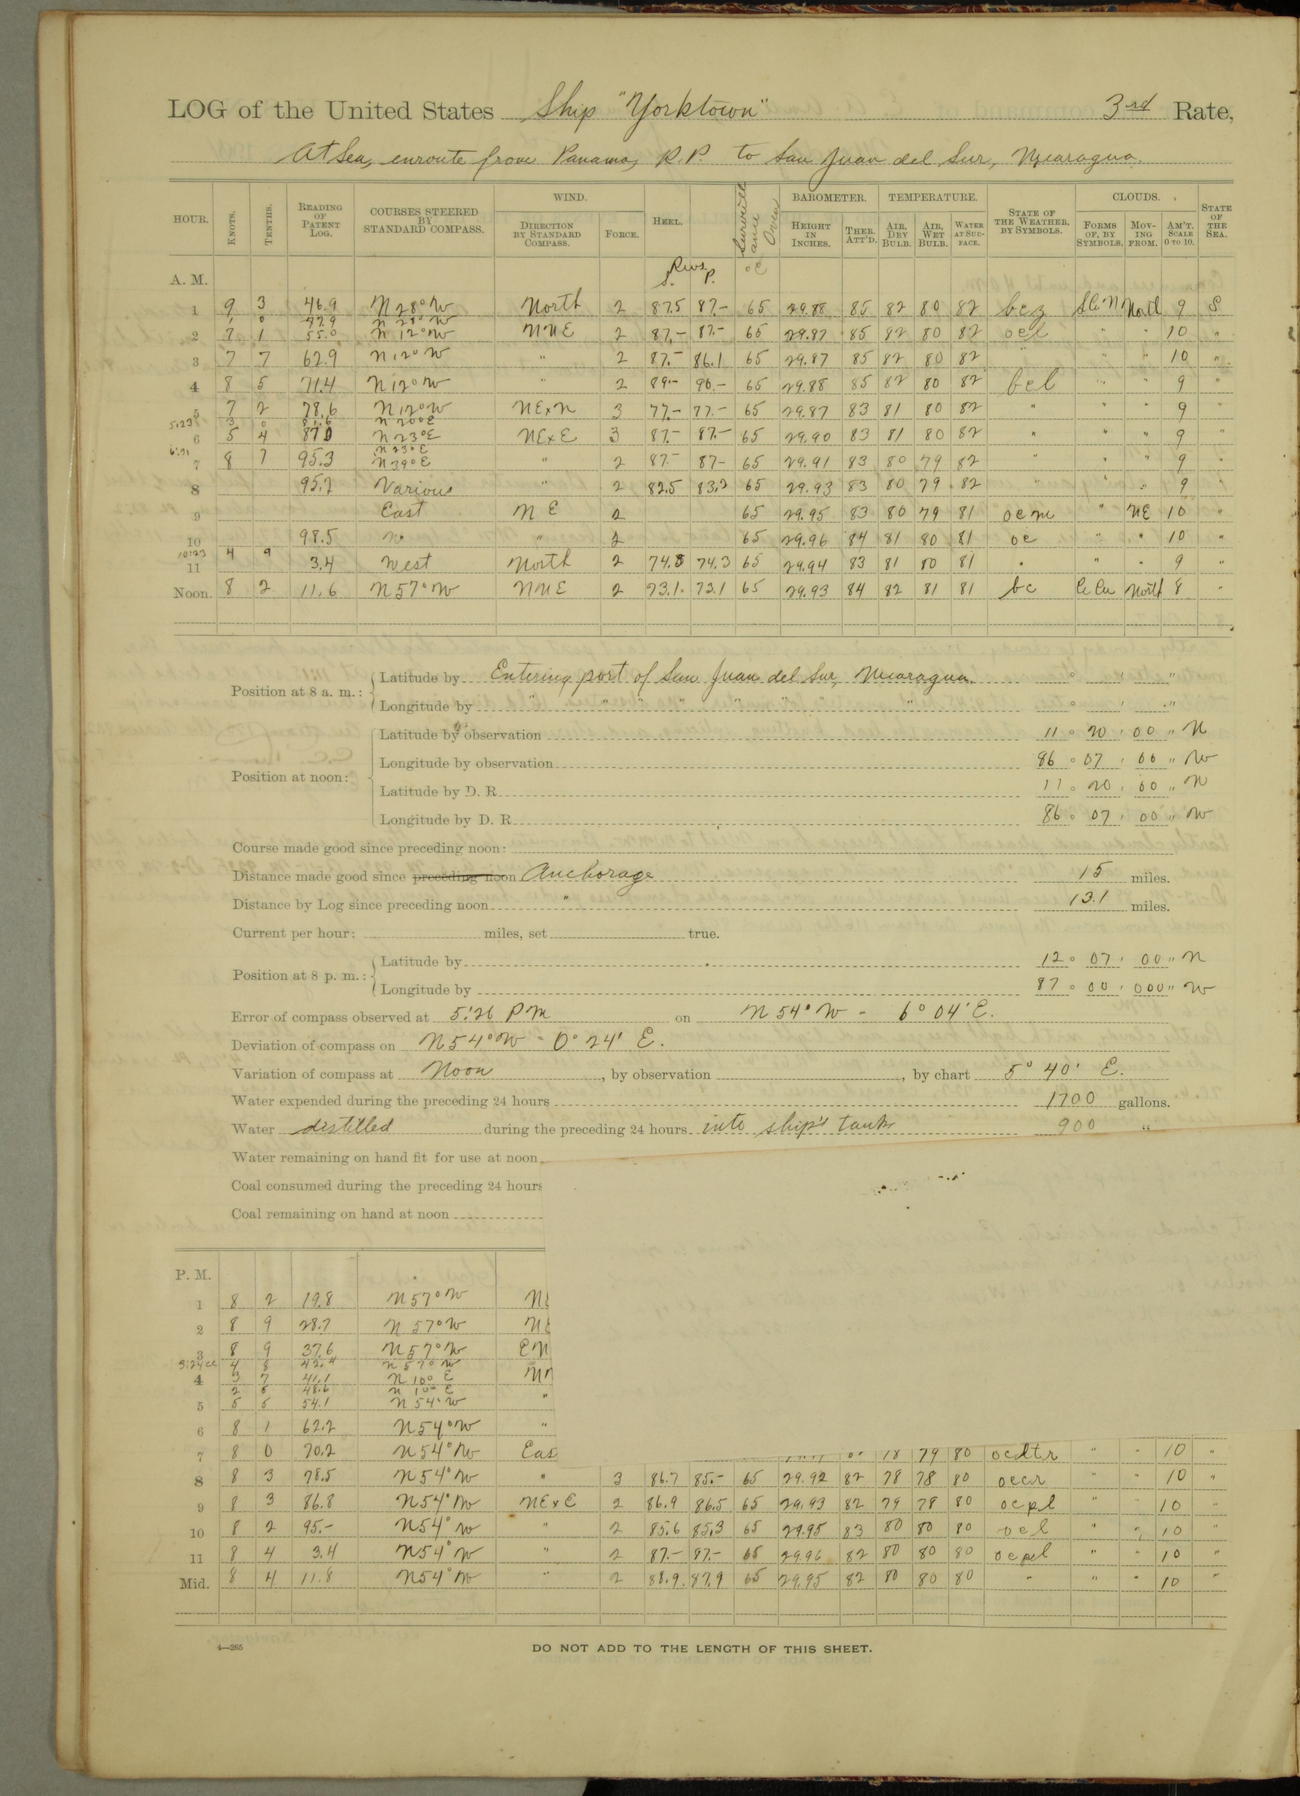 LOG of the United States Ship "Yorktown" 3rd Rate,
At Sea, enroute from Panama, R.P. to San Juan del Sur, Nicaragua.
HOUR. KNOTS. TENTHS. READING OF PATENT LOG. COURSES STEERED BY STANDARD COMPASS. WIND. DIRECTION BY STANDARD COMPASS. FORCE. HEEL. BAROMETER. HEIGHT IN INCHES. THER. ATT'D. TEMPERATURE. AIR, DRY BULB. AIR, WET BULB. WATER AT SURFACE. STATE OF THE WEATHER, BY SYMBOLS. CLOUDS. FORMS OF, BY SYMBOLS. MOVING FROM. AM'T. SCALE 0 TO 10. STATE OF THE SEA.
A. M. Revs. S. P.
1 9 3 46.9 N 28° W North 2 87.5 87.- 65 29.88 85 82 80 82 bcz North 9 S
2 7 1 55.0 N 12° W NNE 2 87.- 87.- 65 29.87 85 82 80 82 ocl " " 10 "
3 7 7 62.9 N 12° W " 2 87.- 86.1 65 29.87 85 82 80 82 " " " 10 "
4 8 5 71.4 N 12° W " 2 89.- 90.- 65 29.88 85 82 80 82 bcl " " 9 "
5 7 2 78.6 N 12° W NExN 3 77.- 77.- 65 29.87 83 81 80 82 " " " 9 "
6 5 4 87.0 N 23° E NExE 3 87.- 87.- 65 29.90 83 81 80 82 " " " 9 "
7 8 7 95.3 N 39° E " 2 87.- 87- 65 29.91 83 80 79 82 " " " 9 "
8 95.7 Various " 2 82.5 83.2 65 29.93 83 80 79 82 " " " 9 "
9 East NE 2 65 29.95 83 80 79 81 ocm " NE 10 "
10 98.5 " 2 65 29.96 84 81 80 81 oc " " 10 "
10:23
11 4 9 3.4 West North 2 74.3 74.3 65 29.94 83 81 80 81 " " " 9 "
Noon. 8 2 11.6 N 57° W NNE 2 73.1 73.1 65 29.93 84 82 81 81 bc Ci Cu North 8 "
Position at 8 a. m.: Latitude by Entering port of San Juan del Sur, Nicaragua.
Longitude by " " " " " " "
Position at noon: Latitude by observation 11 ° 20 ' 00 " N
Longitude by observation 86 ° 07 ' 00 " W
Latitude by D. R. 11 ° 20 ' 00 " N
Longitude by D. R. 86 ° 07 ' 00 " W
Course made good since preceding noon:
Distance made good since preceding noon Anchorage 15 miles.
Distance by Log since preceding noon " 13.1 miles.
Current per hour: miles, set true.
Position at 8 p. m.: Latitude by 12 ° 07 ' 00 " N
Longitude by 87 ° 00 ' 000 " W
Error of compass observed at 5:26 PM on N 54° W - 6° 04' E.
Deviation of compass on N 54° W - 0° 24' E.
Variation of compass at Noon, by observation, by chart 5° 40' E.
Water expended during the preceding 24 hours 1700 gallons.
Water distilled during the preceding 24 hours into ship's tanks 900 "
Water remaining on hand fit for use at noon
Coal consumed during the preceding 24 hours
Coal remaining on hand at noon
P. M.
1 8 2 19.8 N 57° W
2 8 9 28.7 N 57° W
3 8 9 37.6 N 57° W
4 8 42.4 N 57° W
4 3 7 N 10° E
2 5 48.6 N 10° E
5 5 5 54.1 N 54° W "
6 8 1 62.2 N 54° W "
7 8 0 70.2 N 54° W Eas 78 79 80 ocdtr " " 10 "
8 8 3 78.5 N 54° W " 3 86.7 85.- 65 29.92 82 78 78 80 occr " " 10 "
9 8 3 86.8 N 54° W NExE 2 86.9 86.5 65 29.93 82 79 78 80 ocpl " " 10 "
10 8 2 95.- N 54° W " 2 85.6 85.3 65 29.95 83 80 80 80 ocl " " 10 "
11 8 4 3.4 N 54° W " 2 87.- 87.- 65 29.96 82 80 80 80 ocpl " " 10 "
Mid. 8 4 11.8 N 54° W " 2 88.9 87.9 65 29.95 82 80 80 80 " " " 10 "
4—265
DO NOT ADD TO THE LENGTH OF THIS SHEET.